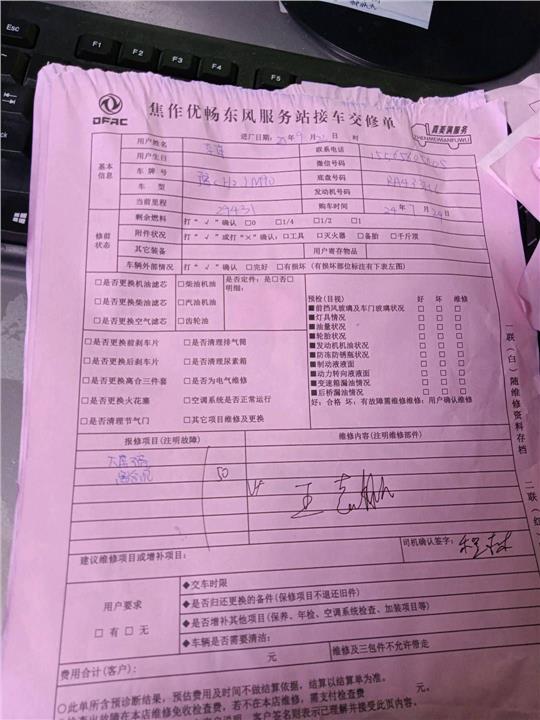 Esc
F1
F2
F3
F4
F5
DFAC
焦作优畅东风服务站接车交修单
真美满服务
ZHENMEIWANFUWU
进厂日期: 25年9月 日 时
基本信息
用户姓名
联系电话
用户生日
微信号码
车牌号
底盘号码
车型
发动机号码
当前里程 29431
购车时间 24年7月24日
修前状态
剩余燃料 打“√”确认 □0 □1/4 □1/2 □1
附件状况 打“√”或打“×”确认: □工具 □灭火器 □备胎 □千斤顶
其它装备
用户寄存物品
车辆外部情况 打“√”确认 □完好 □有损坏 (有损坏部位标注有下表左图)
□是否更换机油滤芯 □柴油机油
□是否更换柴油滤芯 □汽油机油
□是否更换空气滤芯 □齿轮油
是否定件: 是□否□
明细:
□是否更换前刹车片 □是否清理排气筒
□是否更换后刹车片 □是否清理尿素箱
□是否更换离合三件套 □是否为电气维修
□是否更换火花塞 □空调系统是否正常运行
□是否清理节气门 □其它项目维修及更换
预检(目视) 好 坏 维修
■前挡风玻璃及车门玻璃状况 □ □ □
■灯具情况 □ □ □
■油量状况 □ □ □
■轮胎状况 □ □ □
■发动机机油状况 □ □ □
■防冻防锈瓶状况 □ □ □
■制动液液面 □ □ □
■动力转向液液面 □ □ □
■变速箱漏油情况 □ □ □
■后桥漏油情况 □ □ □
好: 合格 坏: 有故障需维修维修: 用户确认维修
报修项目(注明故障)
维修内容(注明维修部件)
50
建议维修项目或增补项目:
司机确认签字:
用户要求
□有 □无
◆交车时限
◆是否归还更换的备件(保修项目不退还旧件)
◆是否增补其他项目(保养、年检、空调系统检查、加装项目等)
◆车辆是否需要清洁:
费用合计(客户): 元
维修及三包件不允许带走
○此单所含预诊断结果, 预估费用及时间不做结算依据, 结算以结算单为准。
检查出故障在本店维修免收检查费, 若不在本店维修, 需支付检查费 元。
客户签名则表示已理解并接受此页内容。
一联(白)随维修资料存档
二联(红